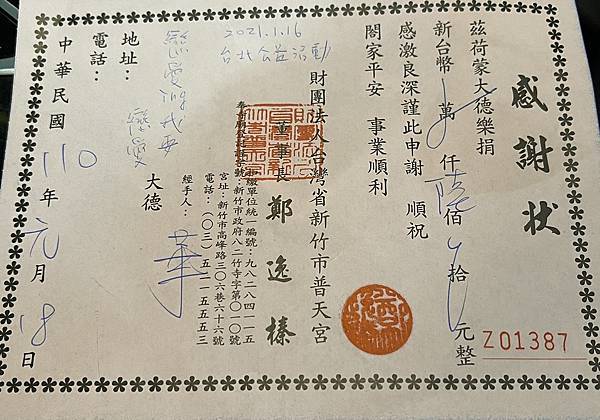 感謝狀
茲荷蒙大德樂捐
新台幣 萬 仟陸佰 拾 元整
感激良深謹此申謝 順祝
閤家平安 事業順利
財團法人台灣省新竹市普天宮
董事長 鄭逸榛
2021.1.16
台北公益活動
扣繳單位統一編號:九八二八四一一五
奉市府 新竹市政府八二竹寺字第〇一〇號
宮址:新竹市高峰路三〇六巷六十六號
電話:(〇三)五二一五五五三
經手人: 華
大德
地址:
電話:
中華民國 110 年 元 月 18 日
Z01387